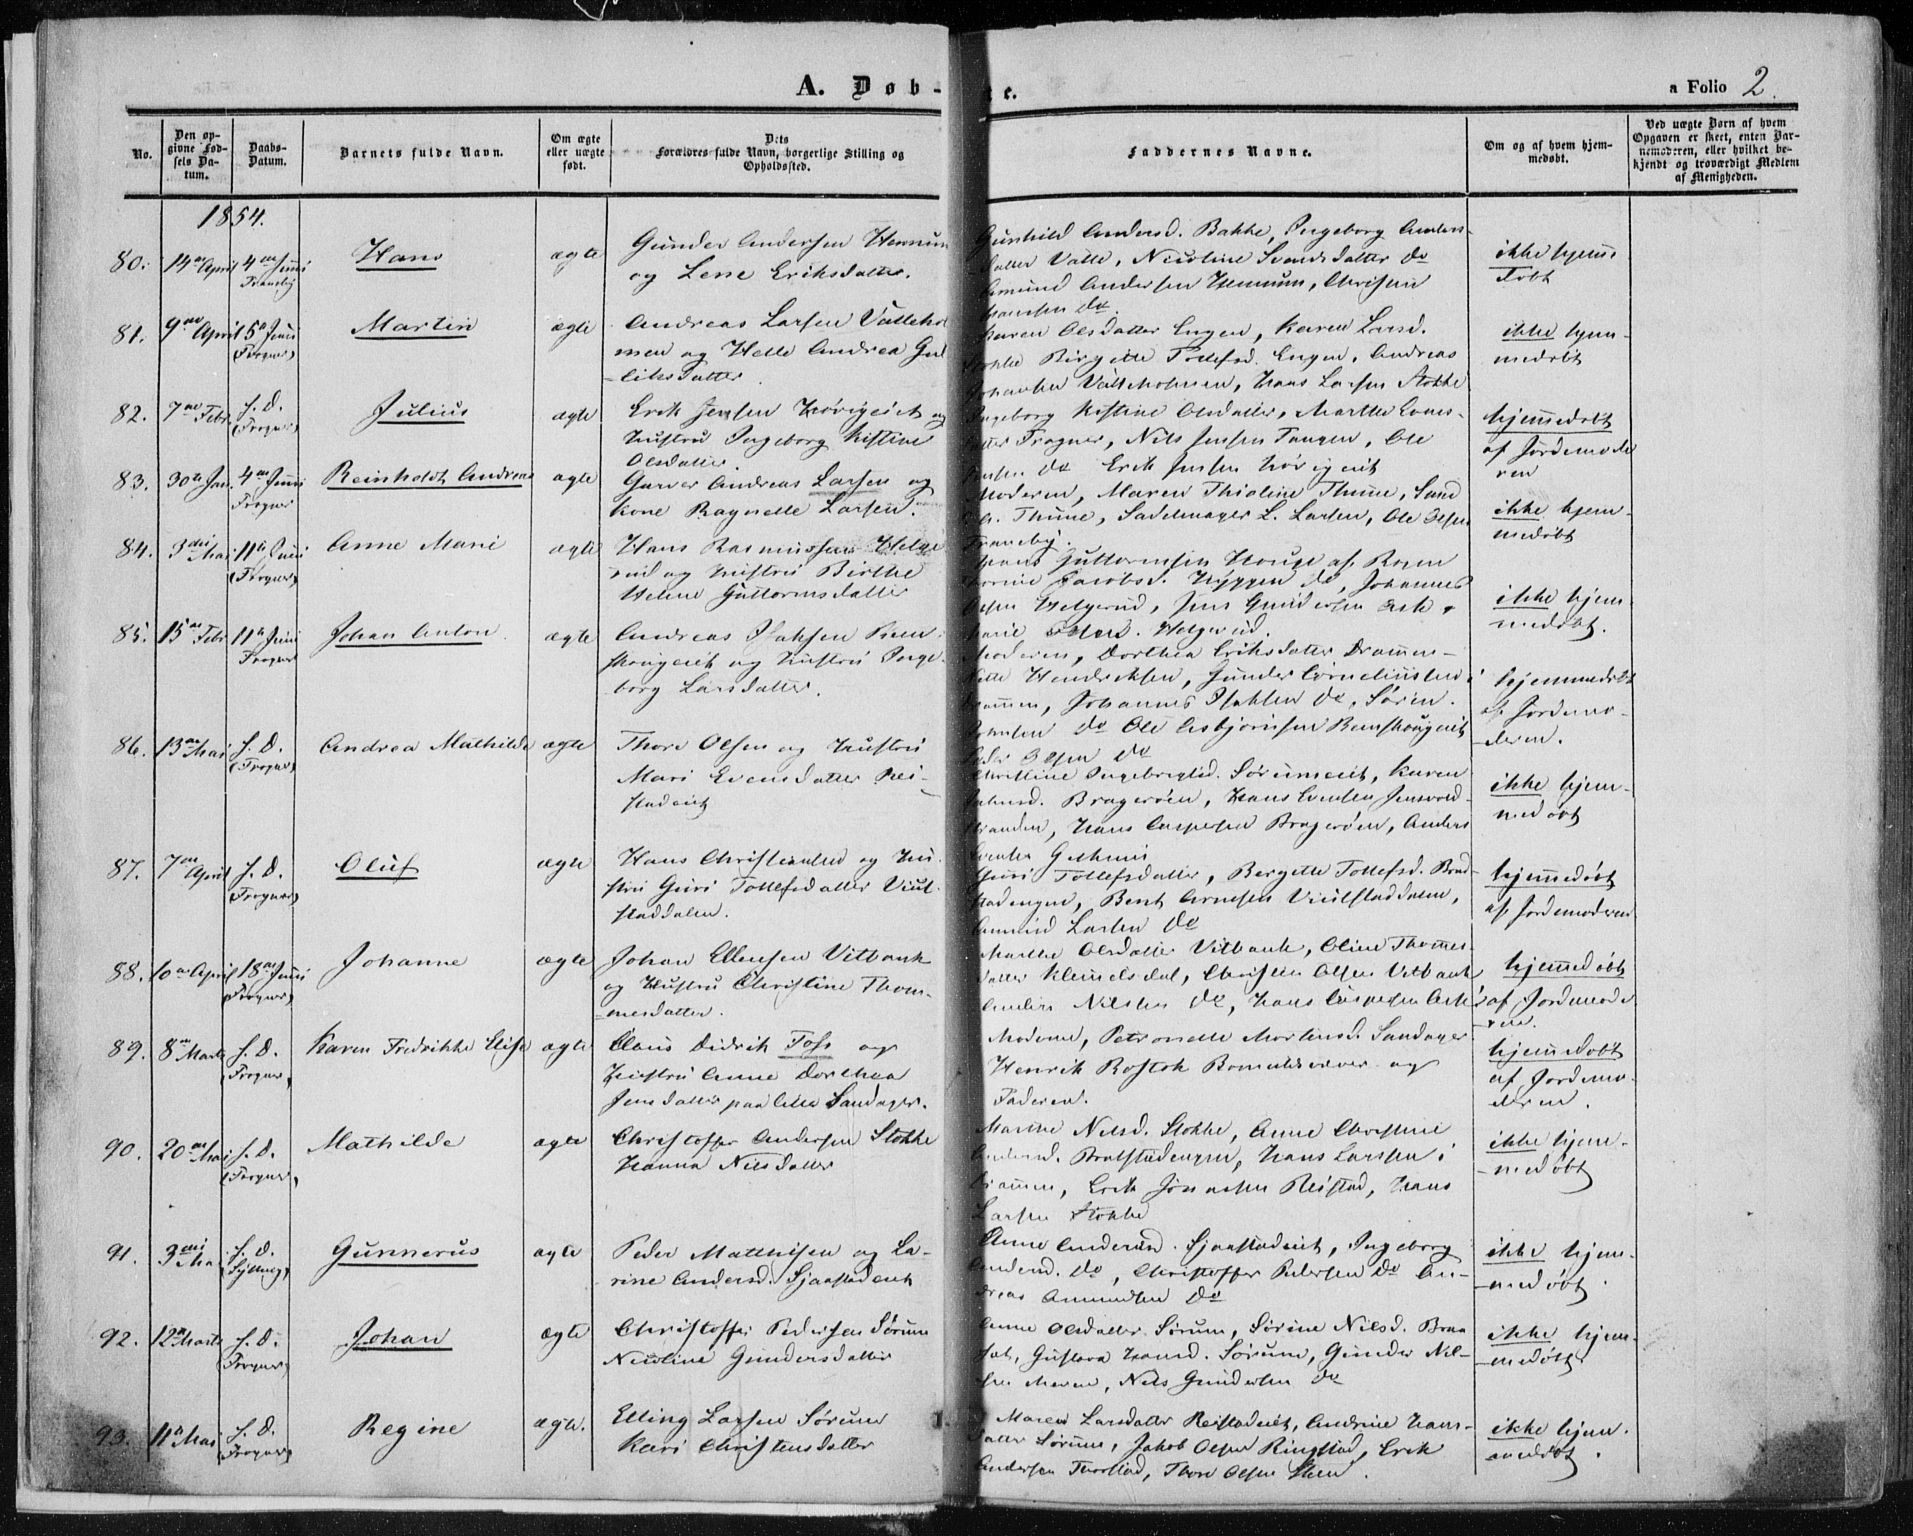 A. Døb-
te.
a Folio 2.
No.
Den op-
givne Fød-
sels Da-
tum.
Daabs-
Datum.
Barnets fulde Navn.
Om ægte
eller uægte
født.
Dets
Forældres fulde Navn, borgerlige Stilling og
Opholdssted.
Faddernes Navne.
Om og af hvem hjem-
medøbt.
Ved uægte Børn af hvem
Opgaven er skeet, enten Bar-
nemoderen, eller hvilket be-
kjendt og troværdigt Medlem
af Menigheden.
1854.
80. 14de April 4de Juni Hans ægte Gunder Andersen Hennum
og Lene Eriksdatter.
Gunhild Andersd. Bakke, Ingeborg Anders-
datter Valle, Nicoline Svendsdatter do
Amund Andersen Hennum, Christen
Hansen do
ikke hjem
døbt
81. 9de April 5te Juni (Frogner) Martin ægte Andreas Larsen Vallehol
men og Helle Andrea Gul
liksdatter.
Karen Olsdatter Engen, Karen Larsd.
Stokke Birgitte Tollefsd. Engen, Andreas
Johansen Valleholmen, Hans Larsen Stokke
ikke hjem-
medøbt
82. 7de Febr. s. D. (Frogner) Julius ægte Erik Jensen Hørigeiet og
Hustru Ingeborg Kistine
Olsdatter.
Ingeborg Kistine Olsdatter, Marthe Evens-
datter Frogner, Nils Jensen Tangen, Ole
Jensen do Erik Jensen Hørigeiet
hjemmedøbt
af Jordemode
ren
83. 30te Jan. 4de Juni Frogner Reinholdt Andreas ægte Garver Andreas Larsen og
Kone Ragnelle Larsen.
Moderen, Maren Thioline Thune,
Thune, Sadelmager L. Larsen, Ole Olsen
Franeby.
ikke hjem-
medøbt
84. 3die Mai 11te Juni (Frogner) Anne Marie ægte Hans Rasmussen Helge
rud og Hustru Birthe
Helene Guttormsdatter
Hans Guttormsen Houge af
Jacobsd. Hyggen do, Johannes
Olsen Helgerud, Jens Gundersen Ask,
Marie Helgerud.
ikke hjem-
medøbt.
85. 15de Febr 11te Juni Frogner Johan Anton. ægte Andreas Isaksen Rem-
skougeiet og Hustru Inge-
borg Larsdatter.
Moderen, Dorthea Eriksdatter Drammen-
Hendriksen, Gunder Corneliussen i
Drammen, Johannes Isaksen do, Søren
do Ole Asbjørnsen Remskougeiet
Peder Olsen do
hjemmedøbt
af Jordemo-
deren.
86. 13de Mai s. D. (Frogner) Andrea Mathilde ægte Thore Olsen og Hustru
Mari Evensdatter Rei-
stadeiet
Christine Ingebrigtsd. Sørumeiet, Karen
Bragerøen, Hans Evensen Jensvold-
stranden, Hans Caspersen Bragerøen, Anders
ikke hjem-
medøbt
87. 7de April s. D. (Frogner) Oluf ægte Hans Christensen og Hu-
stru Guri Tollefsdatter Viul-
staddalen.
Guri Tollefsdatter, Bergitte Tollefsd. Brad-
stadengen, Bent Arnesen Viulstaddalen,
Amund Larsen do
hjemmedøbt
af Jordemoderen
88. 10de April 18de Juni (Frogner) Johanne ægte Johan Ellensen Vitbank
og Hustru Christine Thom-
mesdatter.
Marthe Olsdatter Vitbank, Oline Thommes-
datter Klemelsdal, Christen Olsen Vitbank
Anders Nilsen do, Hans Caspersen Ask
hjemmedøbt
af Jordemode
ren.
89. 8de Marts s. D. (Frogner) Karen Fredrikke Elise ægte Claus Didrik Foss og
Hustru Anne Dorthea
Jensdatter paa Lille Sandager.
Moderne, Petronelle Mortensd. Sandager
Henrik Rostok og
Faderen.
hjemmedøbt
af Jordemo-
deren.
90. 20de Mai s. D. (Frogner) Mathilde ægte Christoffer Andersen Stokke
Hanna Nilsdatter
Marthe Nilsd. Stokke, Anne Christine
Andersd. Bratstadengen, Hans Larsen i
Drammen, Erik Reistad, Hans
Larsen Stokke
ikke hjem-
medøbt
91. 3die Mai s. D. (Sylling) Gunnerus ægte Peder Matthisen og La-
rine Andersd. Sjaastadeiet
Anne Andersd. Sjaastadeiet, Ingeborg
Andersd. do, Christoffer Pedersen do An-
dreas Amundsen do
ikke hjem-
medøbt.
92. 12te Marts s. D. (Frogner) Johan ægte Christoffer Pedersen Sørum
Nicoline Gundersdatter
Anne Olsdatter Sørum, Sørine Nilsd. Braa
tat, Gustava Hansd. Sørum, Gunder Nil-
sen Moren, Nils Gundersen do
ikke hjem-
medøbt
93. 11te Mai s. D. (Frogner) Regine ægte. Elling Larsen Sørum
Kari Christensdatter
Maren Larsdatter Reistadeiet, Andrine Hans-
datter Sørum, Jakob Olsen Ringstad, Erik
Andersen Thorstad, Thore Olsen Steen.
ikke hjem-
medøbt.